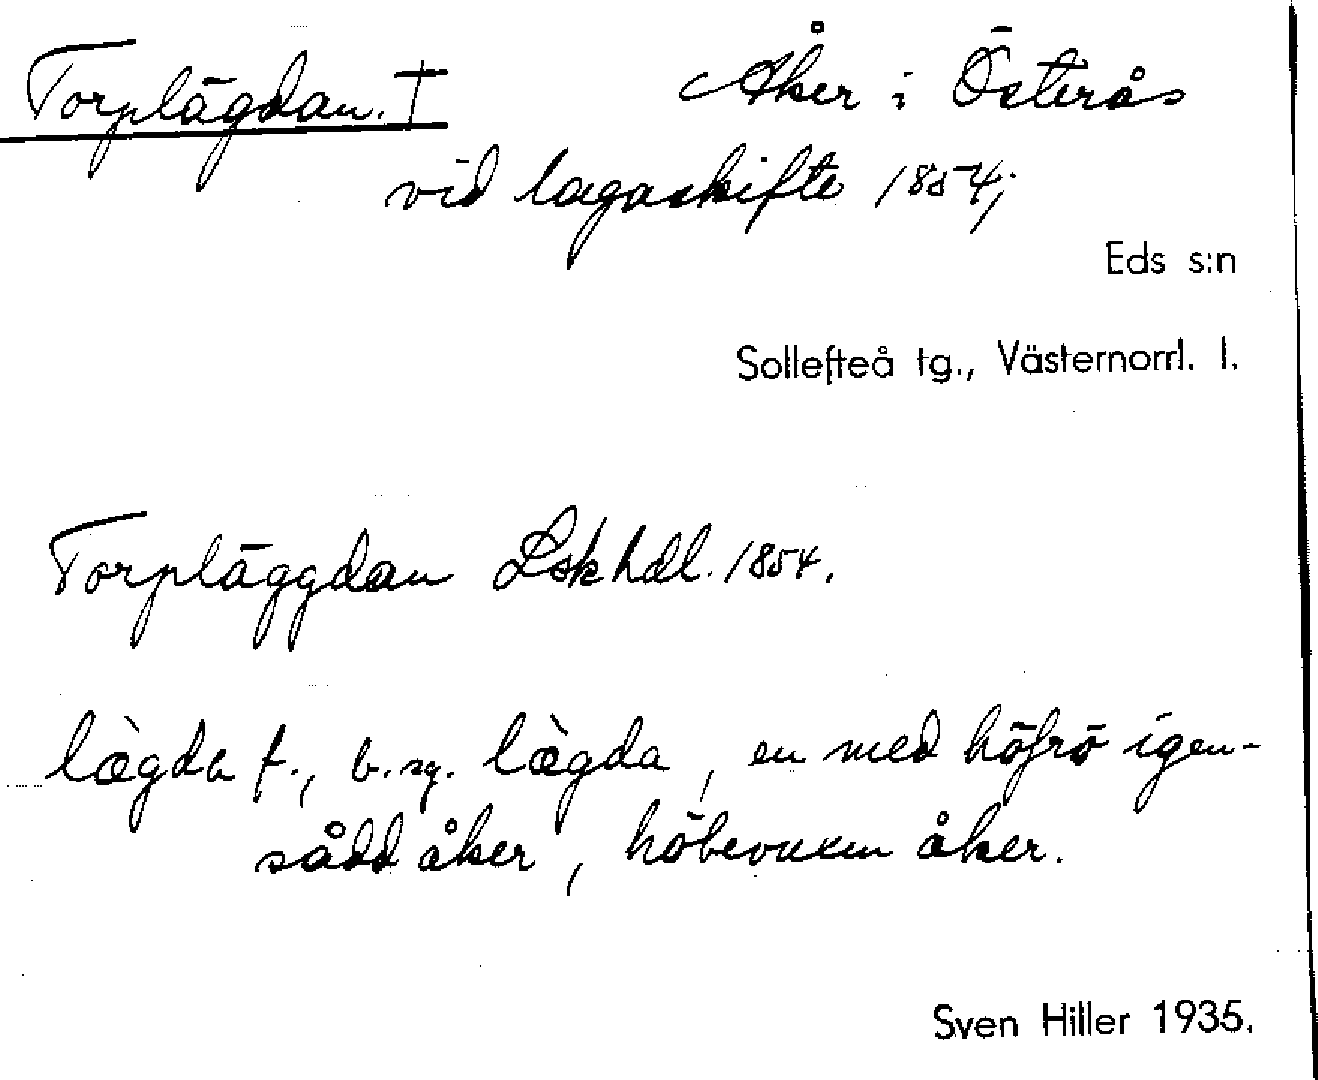 Torplägdan. † Åker i Österås
vid lagaskifte 1854;
Eds s:n
Sollefteå tg., Västernorrl. l.
Torpläggdan Lskhdl. 1854.
lægda f., b. sg. lægda, en med höfrö igen-
sådd åker, höbevuxen åker.
Sven Hiller 1935.